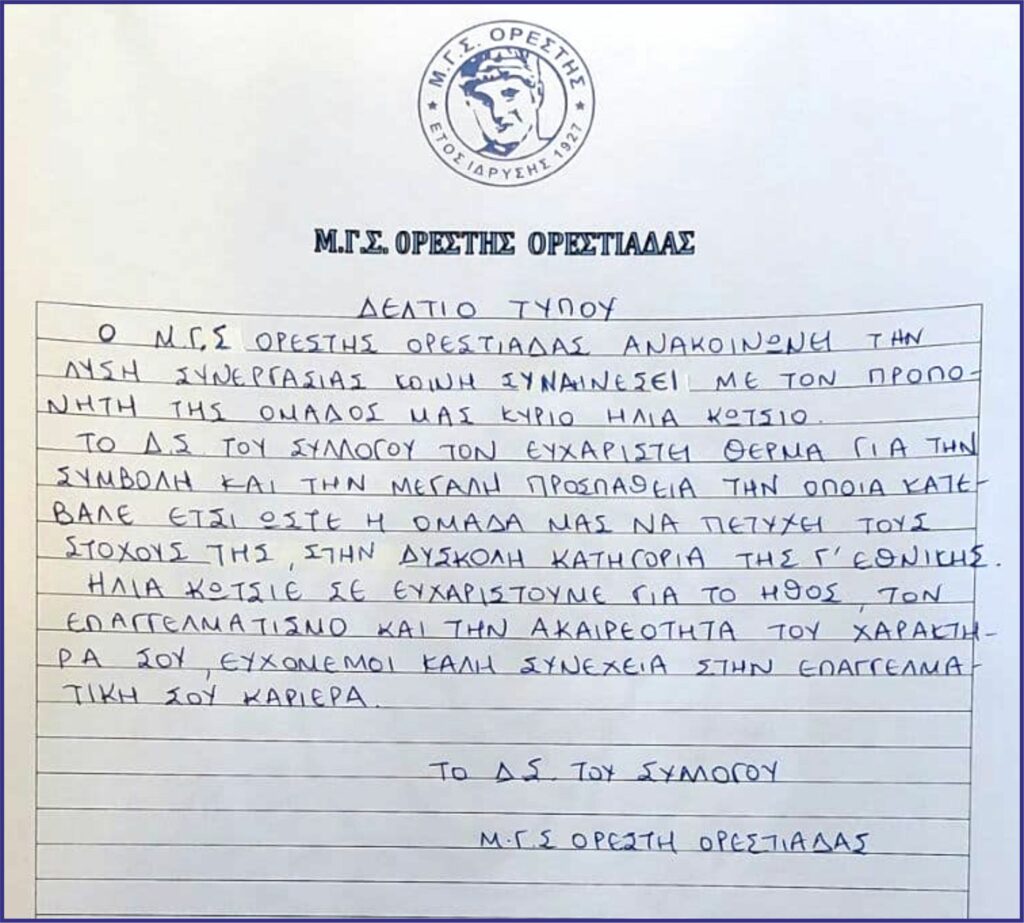 Μ.Γ.Σ. ΟΡΕΣΤΗΣ
ΕΤΟΣ ΙΔΡΥΣΗΣ 1927
Μ.Γ.Σ. ΟΡΕΣΤΗΣ ΟΡΕΣΤΙΑΔΑΣ
ΔΕΛΤΙΟ ΤΥΠΟΥ
Ο Μ.Γ.Σ ΟΡΕΣΤΗΣ ΟΡΕΣΤΙΑΔΑΣ ΑΝΑΚΟΙΝΩΝΕΙ ΤΗΝ
ΛΥΣΗ ΣΥΝΕΡΓΑΣΙΑΣ ΚΟΙΝΗ ΣΥΝΑΙΝΕΣΕΙ ΜΕ ΤΟΝ ΠΡΟΠΟ-
ΝΗΤΗ ΤΗΣ ΟΜΑΔΟΣ ΜΑΣ ΚΥΡΙΟ ΗΛΙΑ ΚΩΤΣΙΟ.
ΤΟ Δ.Σ. ΤΟΥ ΣΥΛΛΟΓΟΥ ΤΟΝ ΕΥΧΑΡΙΣΤΕΙ ΘΕΡΜΑ ΓΙΑ ΤΗΝ
ΣΥΜΒΟΛΗ ΚΑΙ ΤΗΝ ΜΕΓΑΛΗ ΠΡΟΣΠΑΘΕΙΑ ΤΗΝ ΟΠΟΙΑ ΚΑΤΕ-
ΒΑΛΕ ΕΤΣΙ ΩΣΤΕ Η ΟΜΑΔΑ ΜΑΣ ΝΑ ΠΕΤΥΧΕΙ ΤΟΥΣ
ΣΤΟΧΟΥΣ ΤΗΣ, ΣΤΗΝ ΔΥΣΚΟΛΗ ΚΑΤΗΓΟΡΙΑ ΤΗΣ Γ' ΕΘΝΙΚΗΣ.
ΗΛΙΑ ΚΩΤΣΙΕ ΣΕ ΕΥΧΑΡΙΣΤΟΥΜΕ ΓΙΑ ΤΟ ΗΘΟΣ, ΤΟΝ
ΕΠΑΓΓΕΛΜΑΤΙΣΜΟ ΚΑΙ ΤΗΝ ΑΚΑΙΡΕΟΤΗΤΑ ΤΟΥ ΧΑΡΑΚΤΗ-
ΡΑ ΣΟΥ, ΕΥΧΟΜΕΜΟΙ ΚΑΛΗ ΣΥΝΕΧΕΙΑ ΣΤΗΝ ΕΠΑΓΓΕΛΜΑ-
ΤΙΚΗ ΣΟΥ ΚΑΡΙΕΡΑ.
ΤΟ Δ.Σ. ΤΟΥ ΣΥΛΛΟΓΟΥ
Μ.Γ.Σ ΟΡΕΣΤΗ ΟΡΕΣΤΙΑΔΑΣ